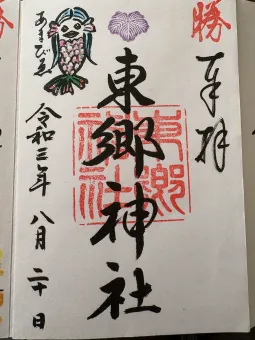 勝
奉拝
東郷神社
東郷神社
あまびゑ
令和三年八月二十日
勝